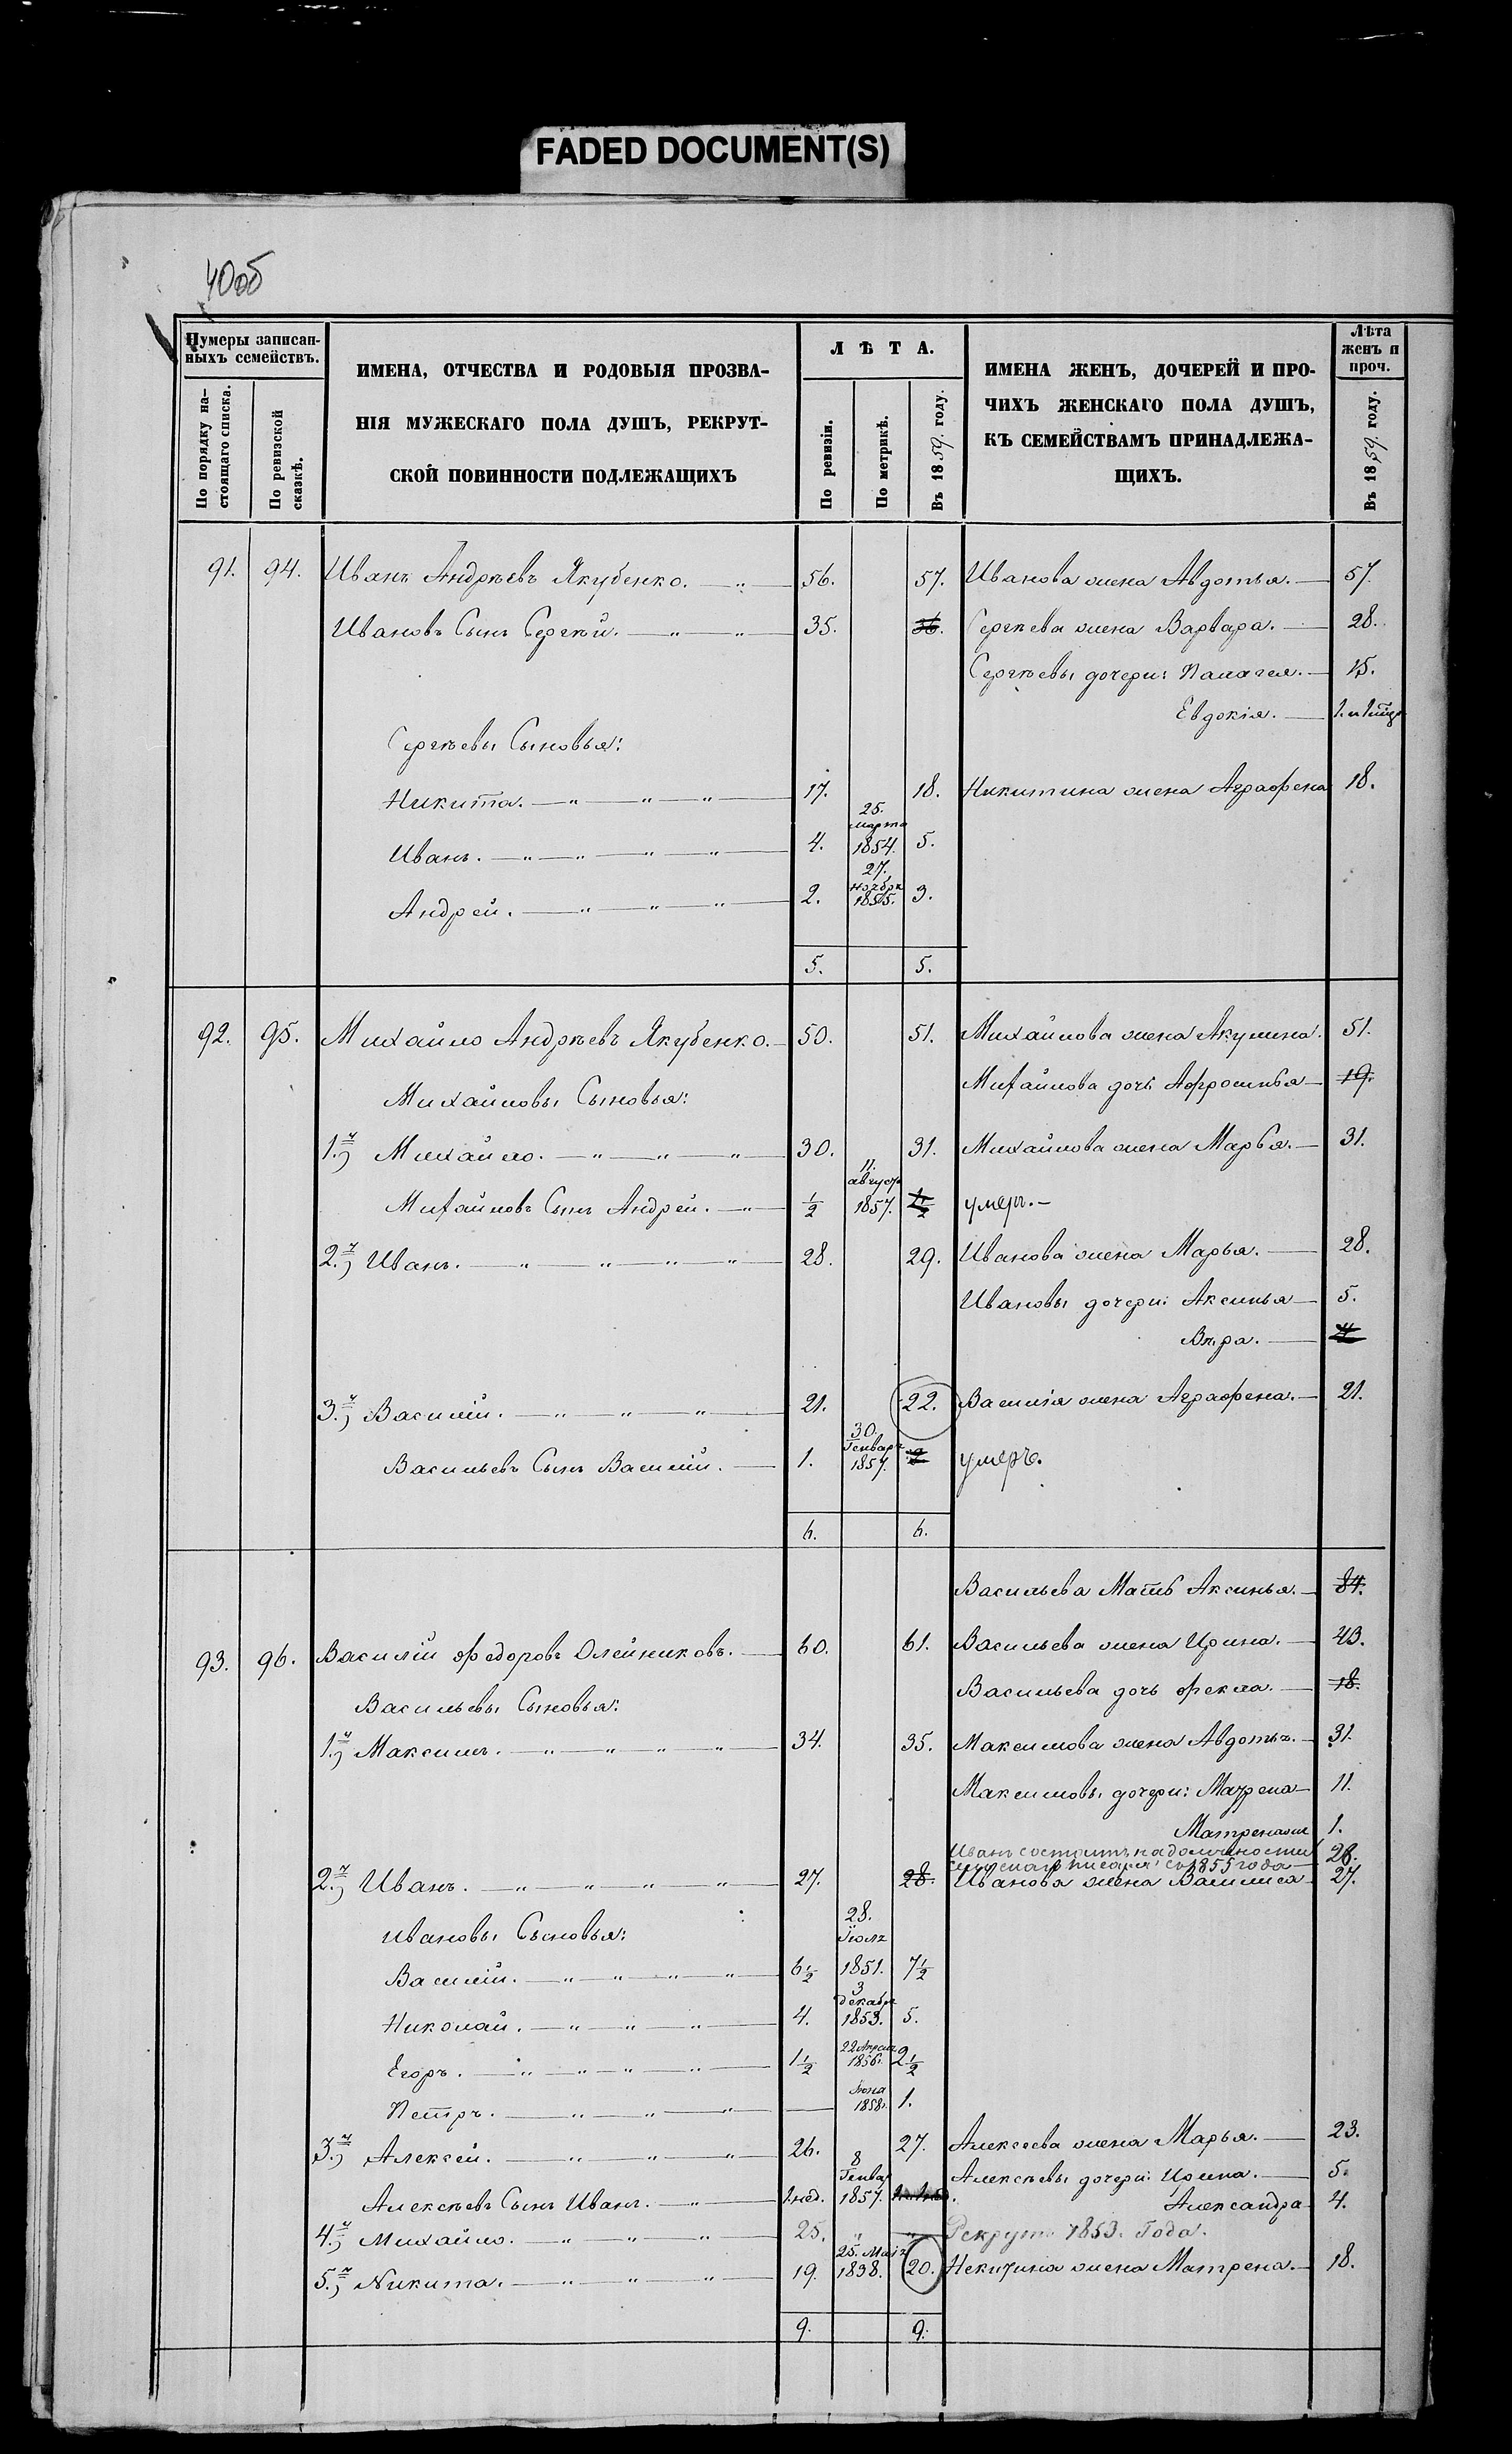 FADED DOCUMENT(S)
40об
Нумеры записан-
ныхъ семействъ.
По порядку на-
стоящаго списка.
По ревизской
сказкѣ.
ИМЕНА, ОТЧЕСТВА И РОДОВЫЯ ПРОЗВА-
НІЯ МУЖЕСКАГО ПОЛА ДУШЪ, РЕКРУТ-
СКОЙ ПОВИННОСТИ ПОДЛЕЖАЩИХЪ
ЛѢТА.
По ревизіи.
По метрикѣ.
Въ 1859. году.
ИМЕНА ЖЕНЪ, ДОЧЕРЕЙ И ПРО-
ЧИХЪ ЖЕНСКАГО ПОЛА ДУШЪ,
КЪ СЕМЕЙСТВАМЪ ПРИНАДЛЕЖА-
ЩИХЪ.
Лѣта
женъ и
проч.
Въ 1859. году.
91. 94. Иванъ Андрѣевъ Якубенко. 56. 57. Иванова жена Авдотья. 57.
Ивановъ Сынъ Сергѣй. 35. 36. Сергѣева жена Варвара. 28.
Сергѣевы дочери: Палагея. 15.
Евдокія.
Сергѣевы Сыновья:
Никита. 17. 18. Никитина жена Аграфена 18.
Иванъ. 4. 25. марта 1854. 5.
Андрей. 2. 27. ноября 1855. 3.
5. 5.
92. 95. Михайло Андрѣевъ Якубенко. 50. 51. Михайлова жена Акулина. 51.
Михайлова дочь Афросинья 19.
Михайловы Сыновья:
1.й) Михайло. 30. 31. Михайлова жена Марья. 31.
Михайловъ Сынъ Андрей. 1/2 11. август 1857. умеръ.
2.й) Иванъ. 28. 29. Иванова жена Марья. 28.
Ивановы дочери: Аксинья 5.
Вѣра. 4
3.й) Василій. 21. 22. Василія жена Аграфена. 21.
Васильевъ Сынъ Василій. 1. 30. Генваря 1857. 2 умеръ.
6. 6.
Васильева Мать Аксинья. 84.
93. 96. Василій Федоровъ Олейниковъ. 60. 61. Васильева жена Ирина. 43.
Васильева дочь Фекла. 18.
Васильевы Сыновья:
1.й) Максимъ. 34. 35. Максимова жена Авдотья. 31.
Максимовы дочери: Мавреna 11.
Матрена 1.
Иванъ состоитъ на должности 28.
сельскаго писаря съ 1855 года
2.й) Иванъ. 27. 28. Иванова жена Василиса 27.
Ивановы Сыновья:
Василій. 6 1/2 28. Іюля 1851. 7 1/2
Николай. 4. 3 декабря 1853. 5.
Егоръ. 1 1/2 22 Апреля 1856. 2 1/2
Петръ. Іюня 1858. 1.
3.й) Алексей. 26. 27. Алексеева жена Марья. 23.
Алексѣевы дочери: Ирина. 5.
Алексѣевъ Сынъ Иванъ. 1.нед. 8 Генвар 1857. Александра 4.
4.й) Михайло. 25. Рекрутъ 1853. Года.
5.й) Никита. 19. 25. Маія 1838. 20. Никитина жена Матрена. 18.
9. 9.